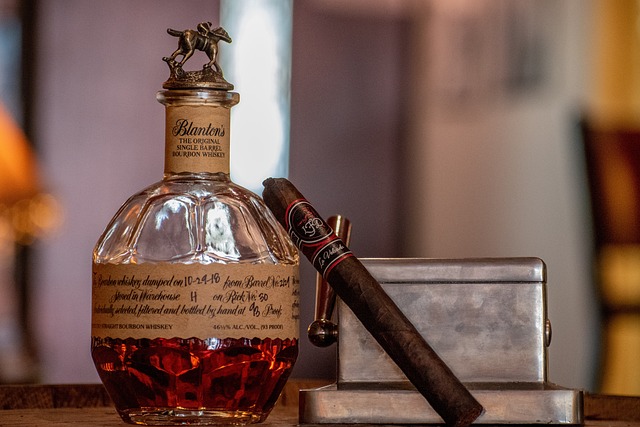 Blanton's
THE ORIGINAL
SINGLE BARREL
BOURBON WHISKEY
Bourbon whiskey dumped on 10-24-18 from Barrel No.
Stored in Warehouse H on Rick No. 30
Individually selected, filtered and bottled by hand at 93 Proof
STRAIGHT BOURBON WHISKEY 46½% ALC./VOL. (93 PROOF)